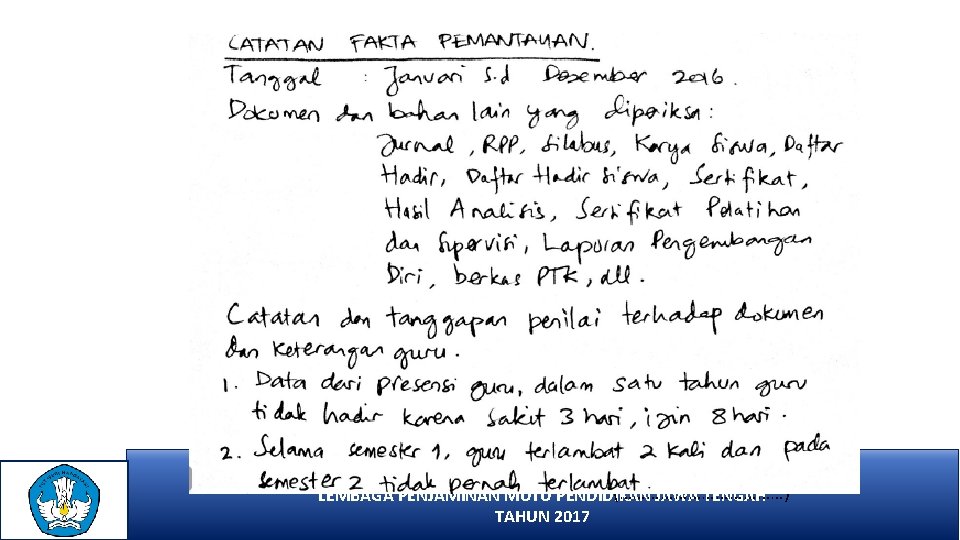 CATATAN FAKTA PEMANTAUAN.
Tanggal : Januari s.d Desember 2016.
Dokumen dan bahan lain yang diperiksa :
Jurnal, RPP, Silabus, Karya Siswa, Daftar
Hadir, Daftar Hadir Siswa, Sertifikat,
Hasil Analisis, Sertifikat Pelatihan
dan Supervisi, Laporan Pengembangan
Diri, berkas PTK, dll.
Catatan dan tanggapan penilai terhadap dokumen
dan keterangan guru.
1. Data dari presensi guru, dalam satu tahun guru
tidak hadir karena sakit 3 hari, izin 8 hari.
2. Selama semester 1, guru terlambat 2 kali dan pada
semester 2 tidak pernah terlambat.
LEMBAGA PENJAMINAN MUTU PENDIDIKAN JAWA TENGAH
TAHUN 2017